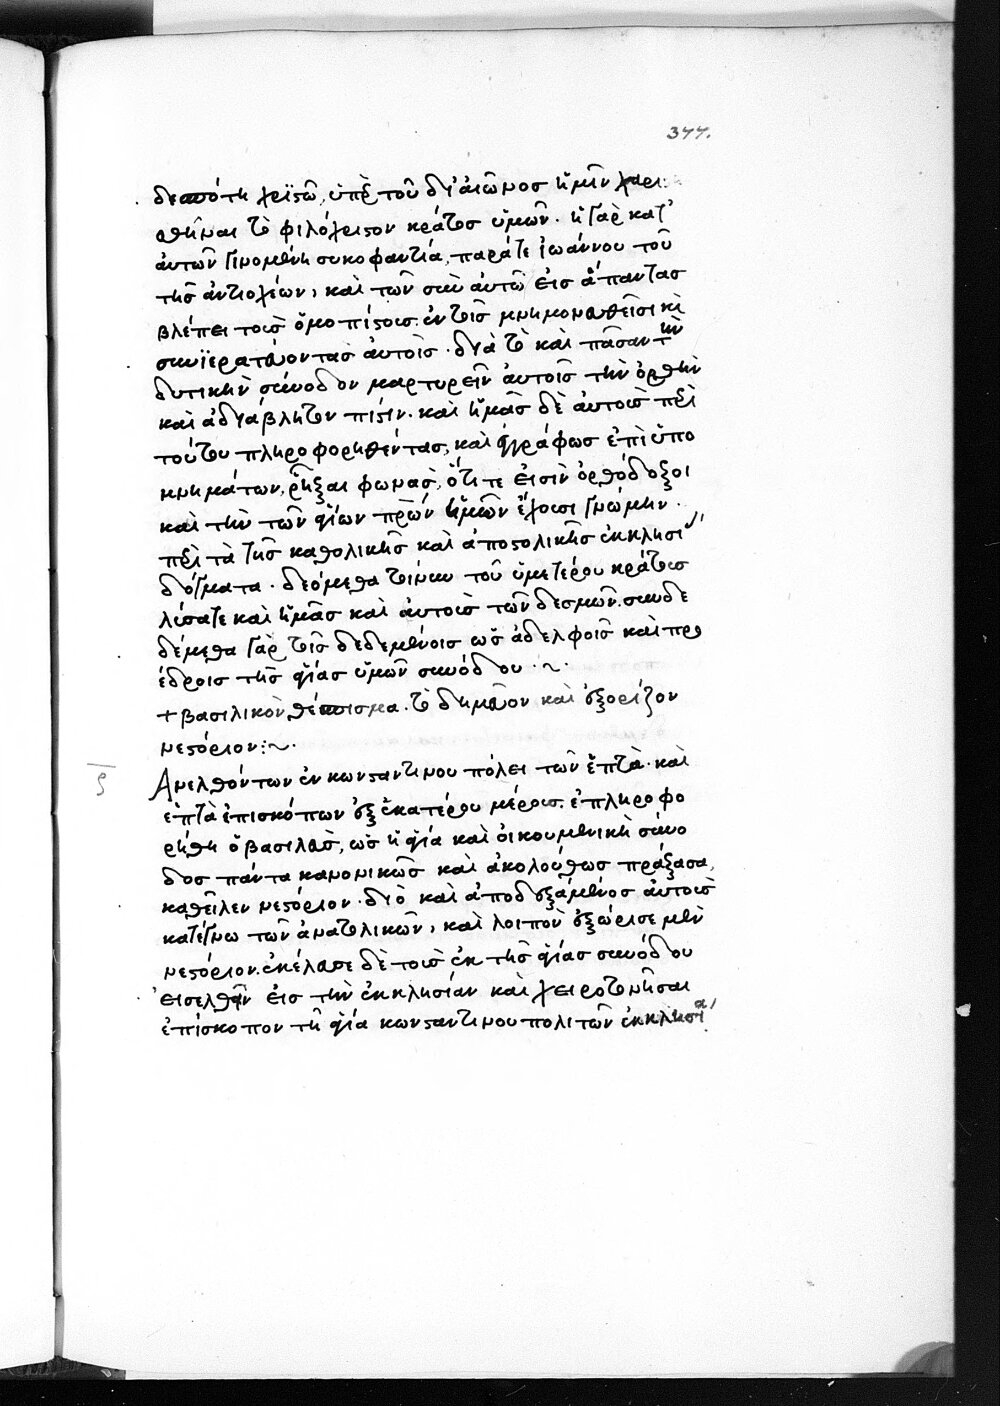 377.
δεσπότη χριστῶ, ὑπὲρ τοῦ δι' αἰῶνος ἡμῖν χαρι
σθῆναι τὸ φιλόχριστον κράτος ὑμῶν. ἡ γὰρ κατ'
αὐτῶν γινομένη συκοφαντία, παράτε ἰωάννου τοῦ
τῆς ἀντιοχέων, καὶ τῶν σὺν αὐτῶ εἰς ἅπαντας
βλέπει τοὺς ὁμοπίστους. ἐν τοῖς μνημονευθεῖσι καὶ
συνϊερατεύοντας αὐτοῖς. διὰ τὸ καὶ πᾶσαν τὴν
δυτικὴν σύνοδον μαρτυρεῖν αὐτοῖς τὴν ὀρθὴν
καὶ ἀδιάβλητον πίστιν. καὶ ἡμᾶς δὲ αὐτοὺς περὶ
τούτου πληροφορηθέντας, καὶ ἐγγράφως ἐπὶ ὑπο
μνημάτων, ῥῆξαι φωνὰς, ὅτι τε εἰσὶν ὀρθόδοξοι
καὶ τὴν τῶν ἁγίων πρῶν ἡμῶν ἔχουσι γνώμην.
περὶ τὰ τῆς καθολικῆς καὶ ἀποστολικῆς ἐκκλησί
δόγματα. δεόμεθα τοίνυν τοῦ ὑμετέρου κράτους
λύσατε καὶ ἡμᾶς καὶ αὐτοὺς τῶν δεσμῶν. συνδε
δέμεθα γὰρ τοῖς δεδεμένοις ὡς ἀδελφοῖς καὶ προ
έδροις τῆς ἁγίας ὑμῶν συνόδου. ~.
+ βασιλικὸν θέσπισμα. τὸ δημεῦον καὶ ἐξορίζον
νεστόριον :~.
ϛ Ἀνελθόντων ἐν κωνσταντίνου πόλει τῶν ἑπτὰ. καὶ
ἑπτὰ ἐπισκόπων ἐξ ἑκατέρου μέρους. ἐπληροφο
ρήθη ὁ βασιλεὺς, ὡς ἡ ἁγία καὶ οἰκουμενικὴ σύνο
δος πάντα κανονικῶς καὶ ἀκολούθως πράξασα,
καθεῖλεν νεστόριον. διὸ καὶ ἀποδεξάμενος αὐτοὺς
κατέγνω τῶν ἀνατολικῶν, καὶ λοιπὸν ἐξώρισε μὲν
νεστόριον. ἐκέλευσε δὲ τοὺς ἐκ τῆς ἁγίας συνόδου
εἰσελθεῖν εἰς τὴν ἐκκλησίαν καὶ χειροτονῆσαι
ἐπίσκοπον τῆ ἁγία κωνσταντινουπολιτῶν ἐκκλησία